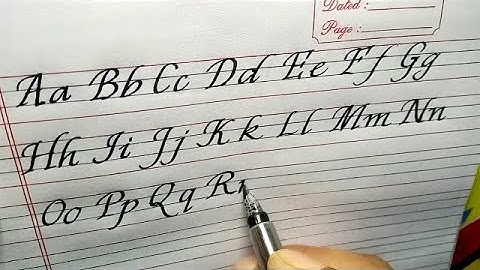 Dated :
Page :
Aa Bb Cc Dd Ee Ff Gg
Hh Ii Jj Kk Ll Mm Nn
Oo Pp Qq Rr